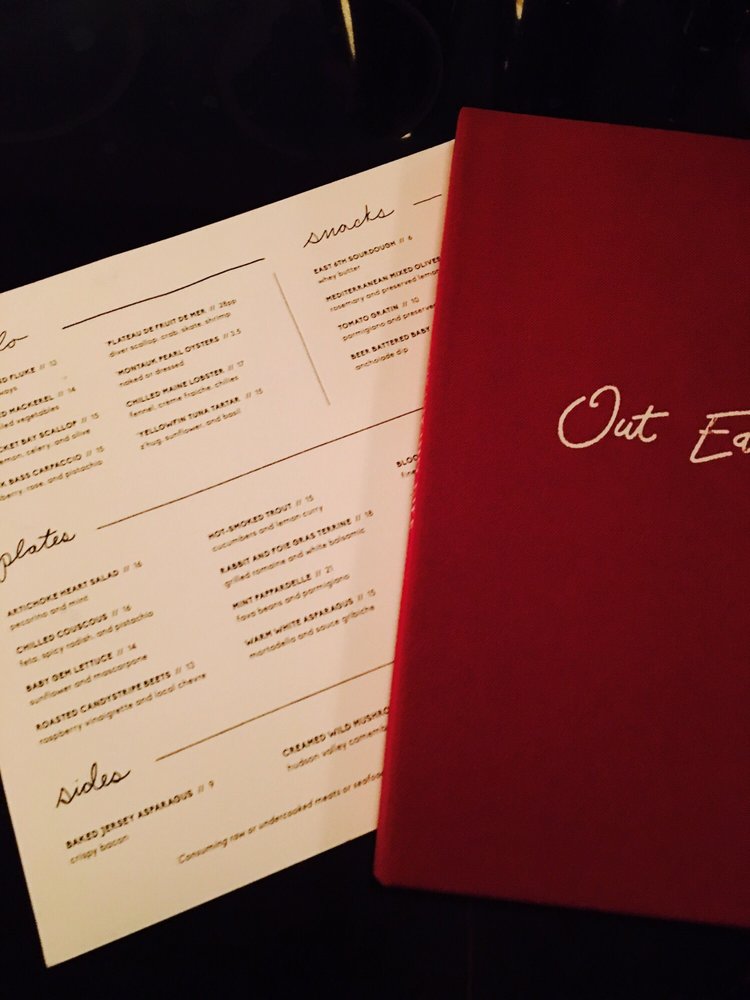 snacks
EAST 6TH SOURDOUGH // 6
whey butter
MEDITERRANEAN MIXED OLIVES
rosemary and preserved lemon
TOMATO GRATIN // 10
parmigiano and preserved
BEER BATTERED BABY
anchoiade dip
FLUKE // 13
MACKEREL // 14
vegetables
BAY SCALLOP // 15
lemon, celery, and olive
BASS CARPACCIO // 15
rose, and pistachio
*PLATEAU DE FRUIT DE MER // 28pp
diver scallop, crab, skate, shrimp
*MONTAUK PEARL OYSTERS // 3.5
naked or dressed
CHILLED MAINE LOBSTER // 17
fennel, creme fraiche, chilies
*YELLOWFIN TUNA TARTAR // 15
z'hug, sunflower, and basil
plates
ARTICHOKE HEART SALAD // 16
pecorino and mint
CHILLED COUSCOUS // 16
feta, spicy radish, and pistachio
BABY GEM LETTUCE // 14
sunflower and mascarpone
ROASTED CANDYSTRIPE BEETS // 13
raspberry vinaigrette and local chevre
HOT-SMOKED TROUT // 15
cucumbers and lemon curry
RABBIT AND FOIE GRAS TERRINE // 18
grilled romaine and white balsamic
MINT PAPPARDELLE // 21
fava beans and parmigiano
WARM WHITE ASPARAGUS // 15
mortadella and sauce gribiche
sides
BAKED JERSEY ASPARAGUS // 9
crispy bacon
CREAMED WILD
hudson valley
Consuming raw or undercooked meats or seafood
Out Ea